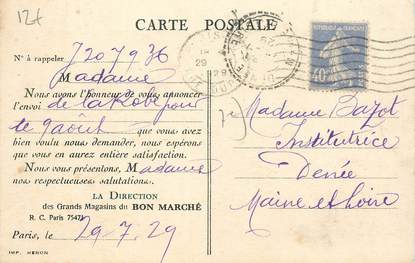 12f
CARTE POSTALE
N° à rappeler 7207936
Madame
Nous avons l'honneur de vous annoncer
l'envoi de la Robe pour
le 9 août que vous avez
bien voulu nous demander, nous espérons
que vous en aurez entière satisfaction.
Nous vous présentons, Madame
nos respectueuses salutations.
LA DIRECTION
des Grands Magasins du BON MARCHÉ
R. C. Paris 75471
Paris, le 29.7.29
IMP. HÉNON
40
Madame Bazot
Institutrice
Denée
Maine et Loire